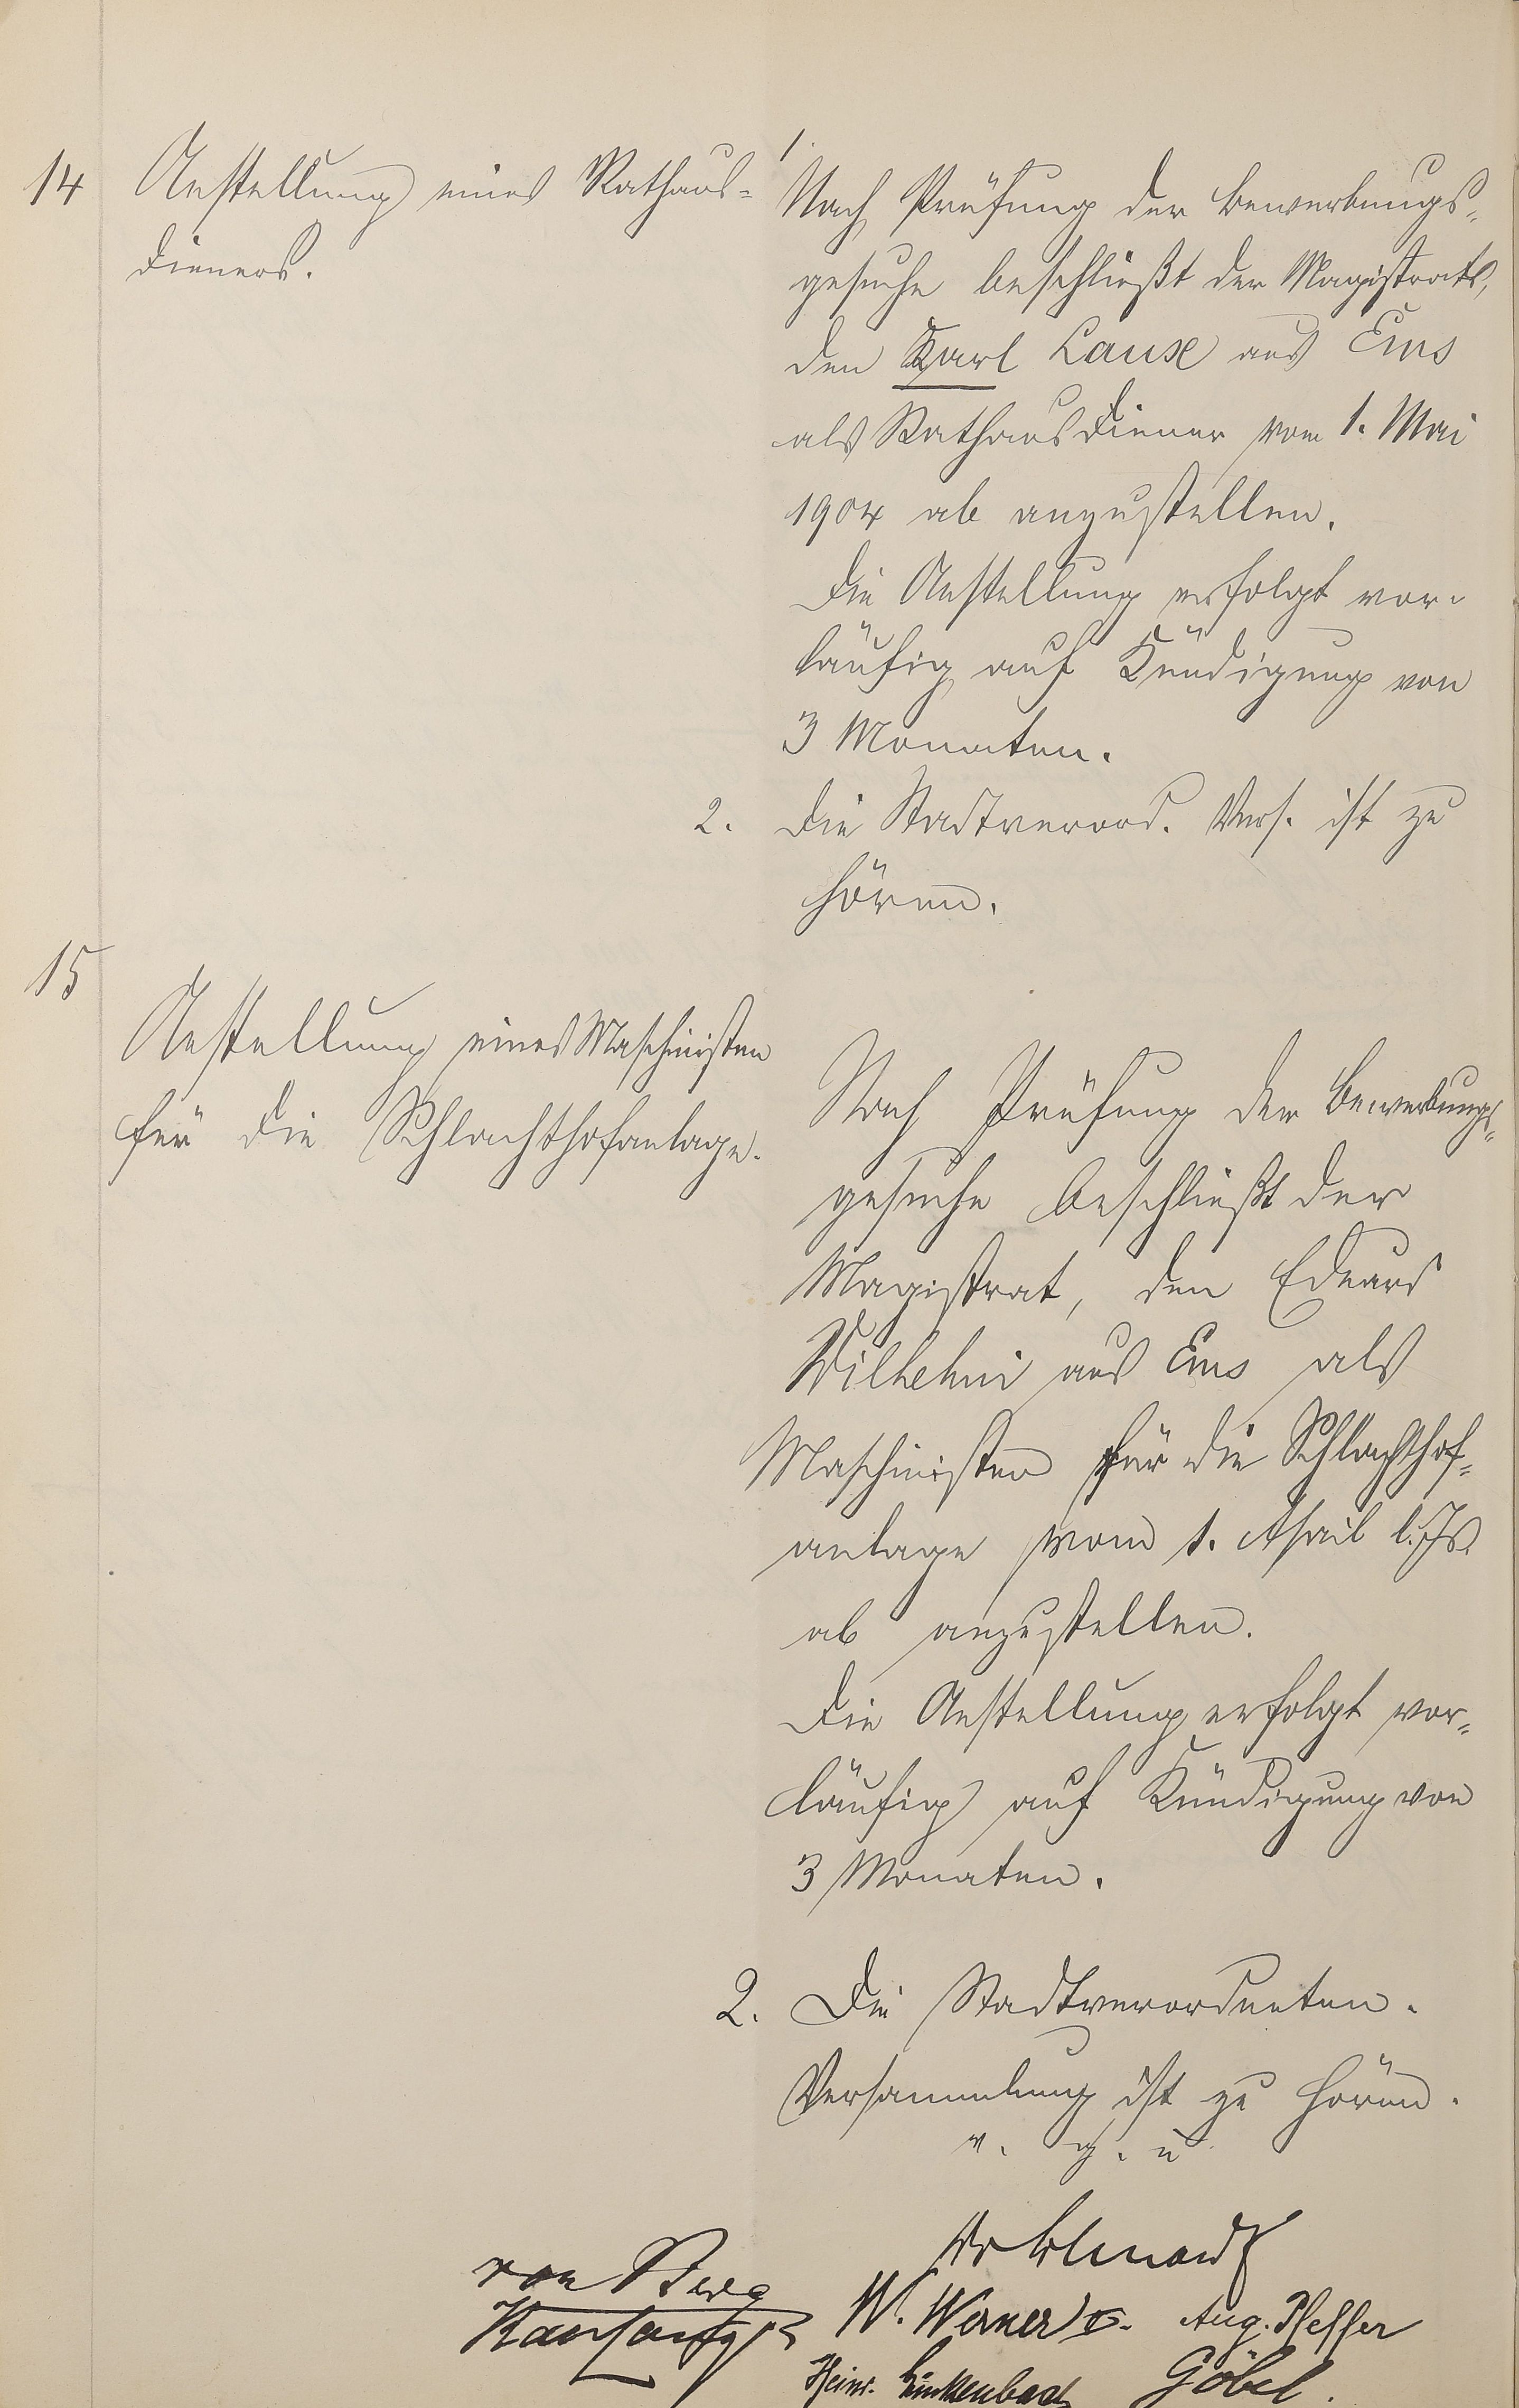 14
Anstellung eines Rathaus=
dieners.
1.
Nach Prüfung der Bewerbungs=
gesuche beschließt der Magistrat,
den Karl Lause aus Ems
als Rathausdiener vom 1. Mai
1904 ab anzustellen.
Die Anstellung erfolgt vor=
läufig auf Kündigung von
3 Monaten.
2. Die Stadtverord. Vers. ist zu
hören.
15
Anstellung eines Maschinisten
für die Schlachthofanlage.
Nach Prüfung der Bewerbungs=
gesuche beschließt der
Magistrat, den Eduard
Wilhelmi aus Ems als
Maschinisten für die Schlachthof=
anlage vom 1. April l. Js.
ab anzustellen.
Die Anstellung erfolgt vor=
läufig auf Kündigung von
3 Monaten.
2. Die Stadtverordneten-
Versammlung ist zu hören.
v. g. u.
W. Werner Aug. Pfeffer
Heinr. Linkenbach Göbel.